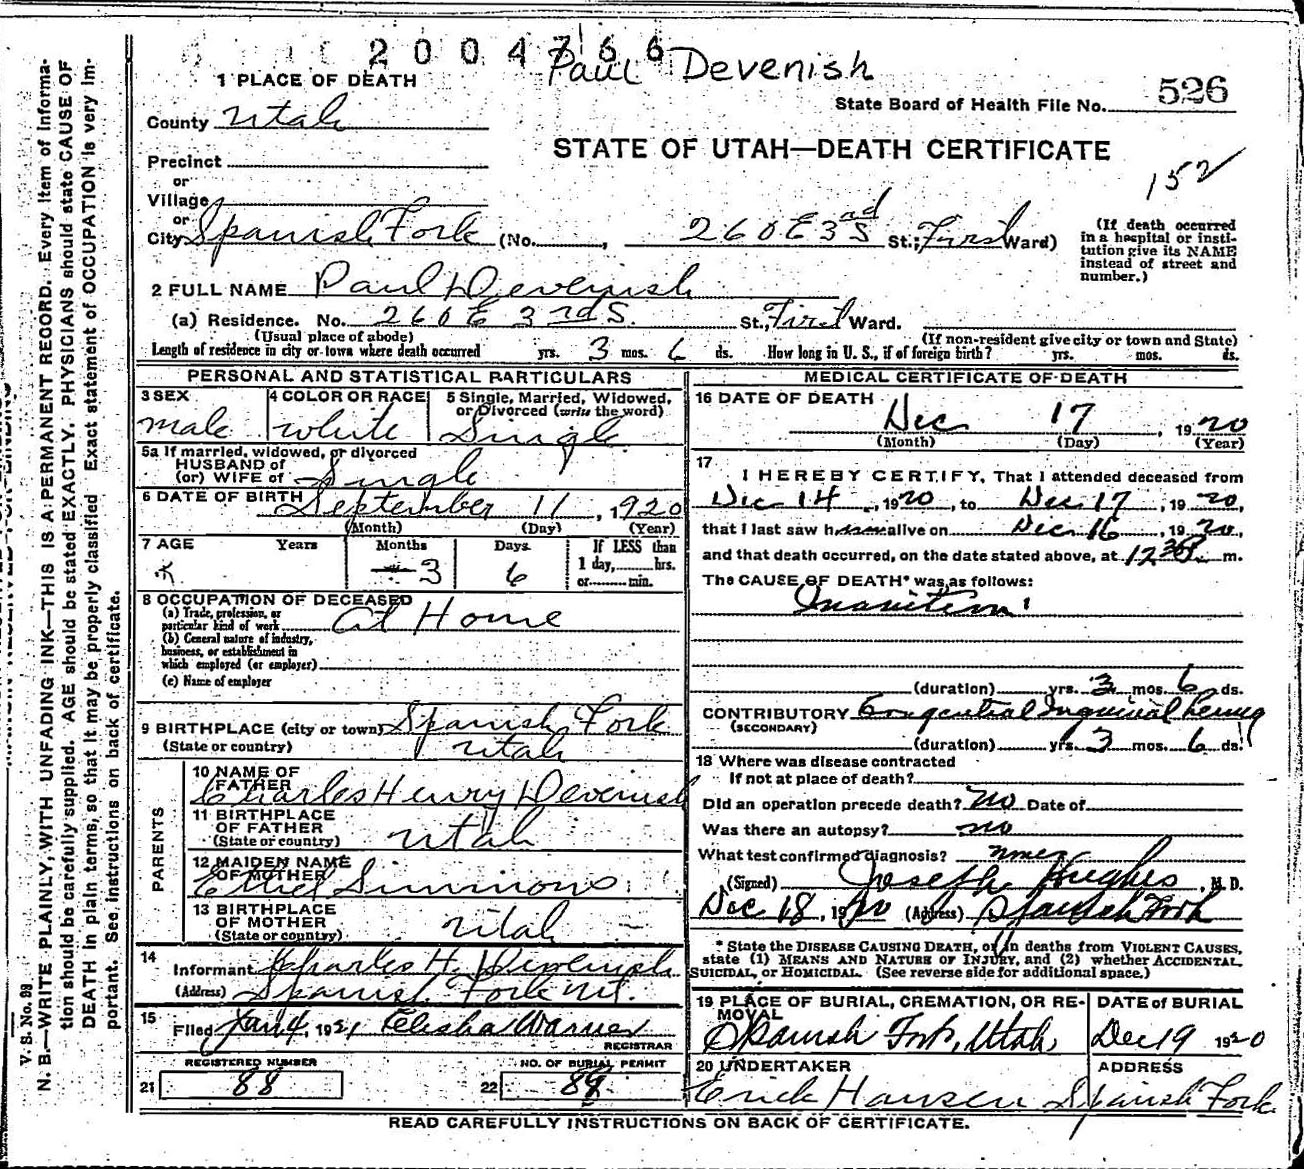 2004766
Paul Devenish
1 PLACE OF DEATH
State Board of Health File No. 526
County Utah
STATE OF UTAH—DEATH CERTIFICATE
Precinct
152
or
Village
or
City Spanish Fork (No. , 260 E 3rd S St.; First Ward)
(If death occurred in a hospital or insti-
tution give its NAME
instead of street and
number.)
2 FULL NAME Paul Devenish
(a) Residence. No. 260 E 3rd S. St., First Ward.
(Usual place of abode) (If non-resident give city or town and State)
Length of residence in city or town where death occurred yrs. 3 mos. 6 ds. How long in U. S., if of foreign birth? yrs. mos. ds.
PERSONAL AND STATISTICAL PARTICULARS
3 SEX
male
4 COLOR OR RACE
white
5 Single, Married, Widowed,
or Divorced (write the word)
Single
5a If married, widowed, or divorced
HUSBAND of
(or) WIFE of Single
6 DATE OF BIRTH September 11, 1920
(Month) (Day) (Year)
7 AGE Years Months Days If LESS than
1 day, hrs.
or min.
3 6
8 OCCUPATION OF DECEASED
(a) Trade, profession, or
particular kind of work At Home
(b) General nature of industry,
business, or establishment in
which employed (or employer)
(c) Name of employer
9 BIRTHPLACE (city or town) Spanish Fork
(State or country) Utah
PARENTS
10 NAME OF
FATHER
Charles Henry Devenish
11 BIRTHPLACE
OF FATHER
(State or country) Utah
12 MAIDEN NAME
OF MOTHER
Ethel Simmons
13 BIRTHPLACE
OF MOTHER
(State or country) Utah
14
Informant Charles H. Devenish
(Address) Spanish Fork Ut.
15
Filed Jan 4, 1921, Elisha Warner
REGISTRAR
REGISTERED NUMBER
21 88
NO. OF BURIAL PERMIT
22 88
MEDICAL CERTIFICATE OF DEATH
16 DATE OF DEATH
Dec 17, 1920
(Month) (Day) (Year)
17
I HEREBY CERTIFY, That I attended deceased from
Dec 14, 1920, to Dec 17, 1920,
that I last saw h alive on Dec 16, 1920,
and that death occurred, on the date stated above, at 12 30 P. m.
The CAUSE OF DEATH* was as follows:
Inanition
(duration) yrs. 3 mos. 6 ds.
CONTRIBUTORY Congenital Inguinal hernia
(SECONDARY)
(duration) yrs. 3 mos. 6 ds.
18 Where was disease contracted
If not at place of death?
Did an operation precede death? no Date of
Was there an autopsy? no
What test confirmed diagnosis?
(Signed) Joseph Hughes, M. D.
Dec 18, 1920 (Address) Spanish Fork
* State the DISEASE CAUSING DEATH, or in deaths from VIOLENT CAUSES,
state (1) MEANS AND NATURE OF INJURY, and (2) whether ACCIDENTAL,
SUICIDAL, or HOMICIDAL. (See reverse side for additional space.)
19 PLACE OF BURIAL, CREMATION, OR RE-
MOVAL
Spanish Fork, Utah
DATE of BURIAL
Dec 19 1920
20 UNDERTAKER
Erick Hansen
ADDRESS
Spanish Fork
READ CAREFULLY INSTRUCTIONS ON BACK OF CERTIFICATE.
V. S. No. 98
N. B.—WRITE PLAINLY, WITH UNFADING INK—THIS IS A PERMANENT RECORD. Every item of informa-
tion should be carefully supplied. AGE should be stated EXACTLY. PHYSICIANS should state CAUSE OF
DEATH in plain terms, so that it may be properly classified. Exact statement of OCCUPATION is very im-
portant. See instructions on back of certificate.